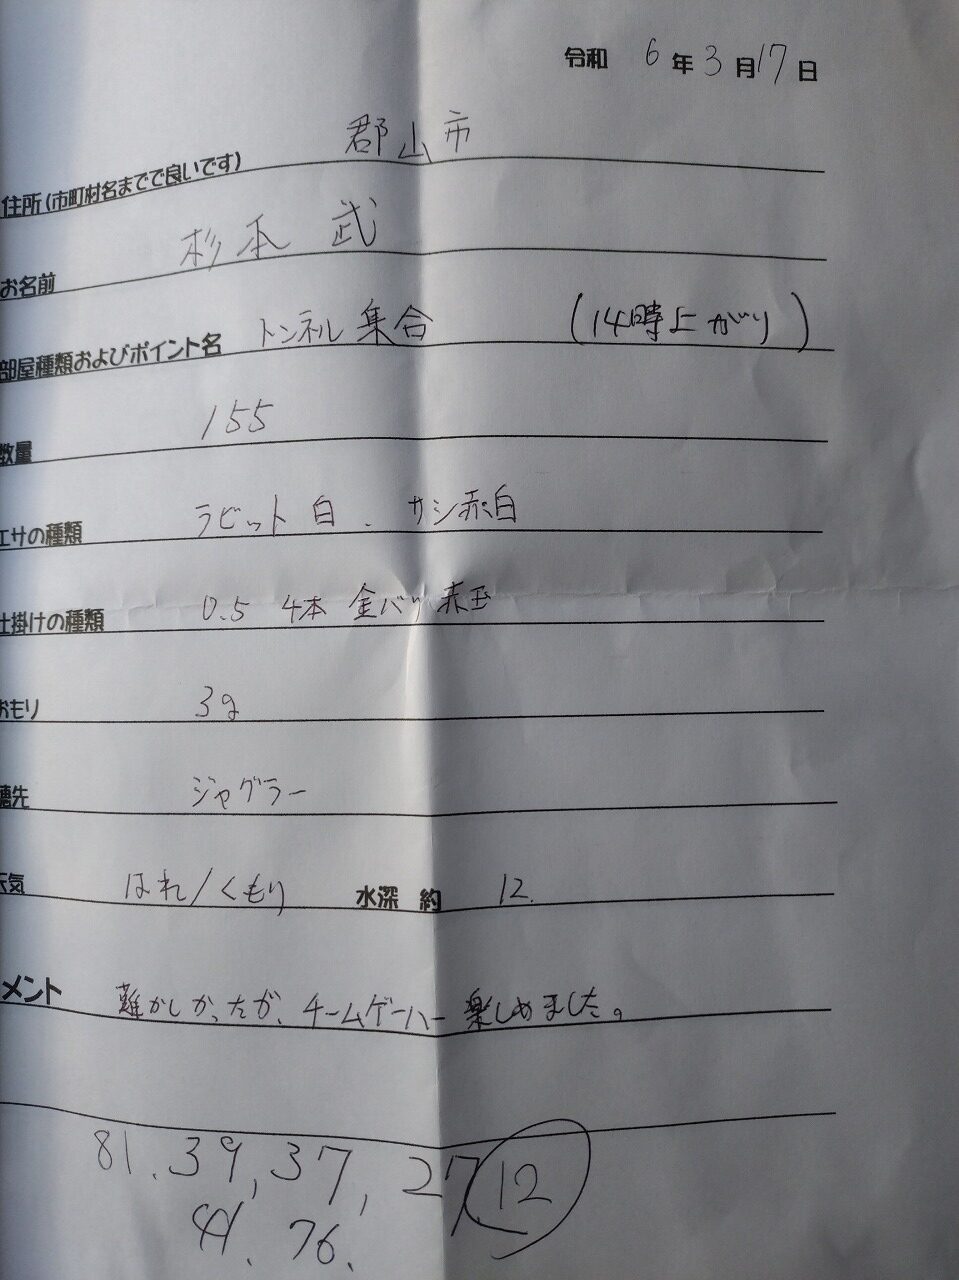 令和 6年3月17日
住所(市町村名までで良いです) 郡山市
お名前 杉本 武
部屋種類およびポイント名 トンネル 集合 (14時上がり)
数量 155
エサの種類 ラビット 白、サシ赤白
仕掛けの種類 0.5 4本 金バリ 赤玉
おもり 3g
穂先 ジャグラー
天気 はれ/くもり 水深 約 12.
メント 難かしかったが、チーム 楽しめました。
81.39,37,27 12
41.76.